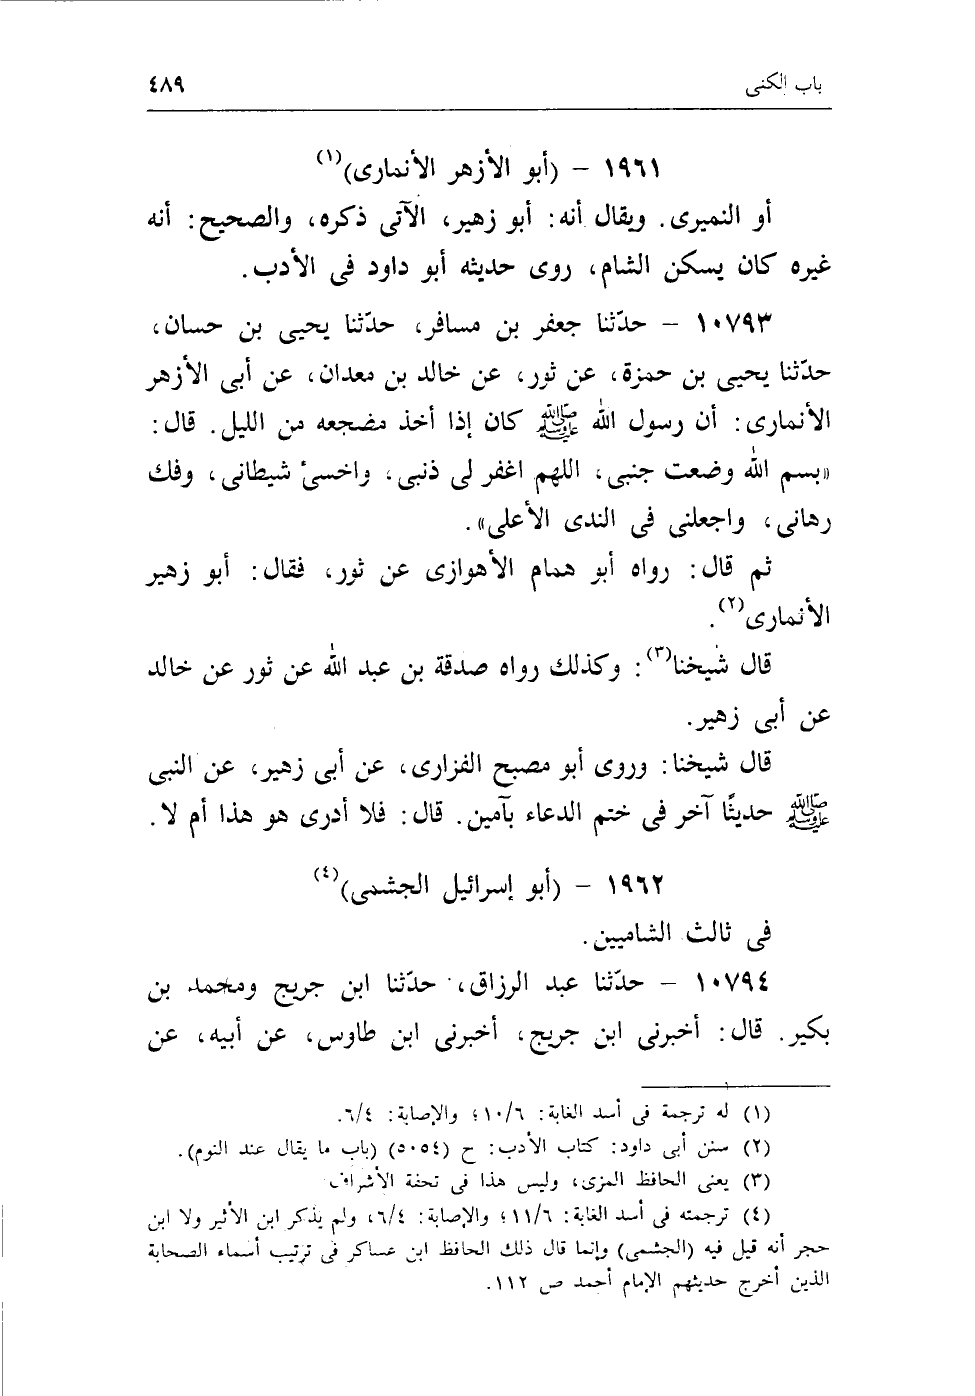 باب الكنى ٤٨٩
١٩٦١ - (أبو الأزهر الأنمارى)(١)
أو النميرى. ويقال أنه: أبو زهير، الآتى ذكره، والصحيح: أنه
غيره كان يسكن الشام، روى حديثه أبو داود فى الأدب.
١٠٧٩٣ - حدّثنا جعفر بن مسافر، حدّثنا يحيى بن حسان،
حدّثنا يحيى بن حمزة، عن ثور، عن خالد بن معدان، عن أبى الأزهر
الأنمارى: أن رسول الله ﷺ كان إذا أخذ مضجعه من الليل. قال:
«بسم الله وضعت جنبى، اللهم اغفر لى ذنبى، واخسئ شيطانى، وفك
رهانى، واجعلنى فى الندى الأعلى».
ثم قال: رواه أبو همام الأهوازى عن ثور، فقال: أبو زهير
الأنمارى(٢).
قال شيخنا(٣): وكذلك رواه صدقة بن عبد الله عن ثور عن خالد
عن أبى زهير.
قال شيخنا: وروى أبو مصبح الفزارى، عن أبى زهير، عن النبى
ﷺ حديثًا آخر فى ختم الدعاء بآمين. قال: فلا أدرى هو هذا أم لا.
١٩٦٢ - (أبو إسرائيل الجشمى)(٤)
فى ثالث الشاميين.
١٠٧٩٤ - حدّثنا عبد الرزاق، حدّثنا ابن جريج ومحمد بن
بكير. قال: أخبرنى ابن جريج، أخبرنى ابن طاوس، عن أبيه، عن
(١) له ترجمة فى أسد الغابة: ١٠/٦؛ والإصابة: ٦/٤.
(٢) سنن أبى داود: كتاب الأدب: ح (٥٠٥٤) (باب ما يقال عند النوم).
(٣) يعنى الحافظ المزى، وليس هذا فى تحفة الأشراف.
(٤) ترجمته فى أسد الغابة: ١١/٦؛ والإصابة: ٦/٤، ولم يذكر ابن الأثير ولا ابن
حجر أنه قيل فيه (الجشمى) وإنما قال ذلك الحافظ ابن عساكر فى ترتيب أسماء الصحابة
الذين أخرج حديثهم الإمام أحمد ص ١١٢.